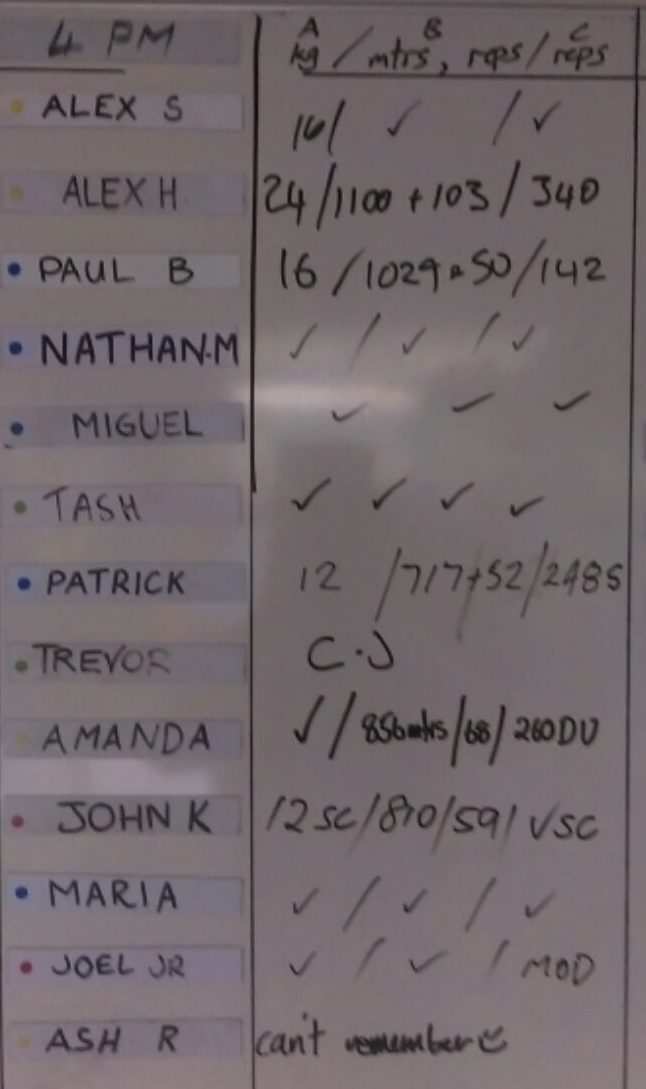 4 PM A B C
kg / mtrs, reps / reps
ALEX S 16/ ✓ / ✓
ALEX H 24 / 1100 + 103 / 340
PAUL B 16 / 1029 + 50 / 142
NATHAN.M ✓ / ✓ / ✓
MIGUEL ✓ ✓ ✓
TASH ✓ ✓ ✓ ✓
PATRICK 12 / 717+52 / 248S
TREVOR C.J
AMANDA ✓ / 856mtrs / 68 / 260 DU
JOHN K 12 SC / 870 / 59 / VSC
MARIA ✓ / ✓ / ✓
JOEL JR ✓ / ✓ / MOD
ASH R can't remember